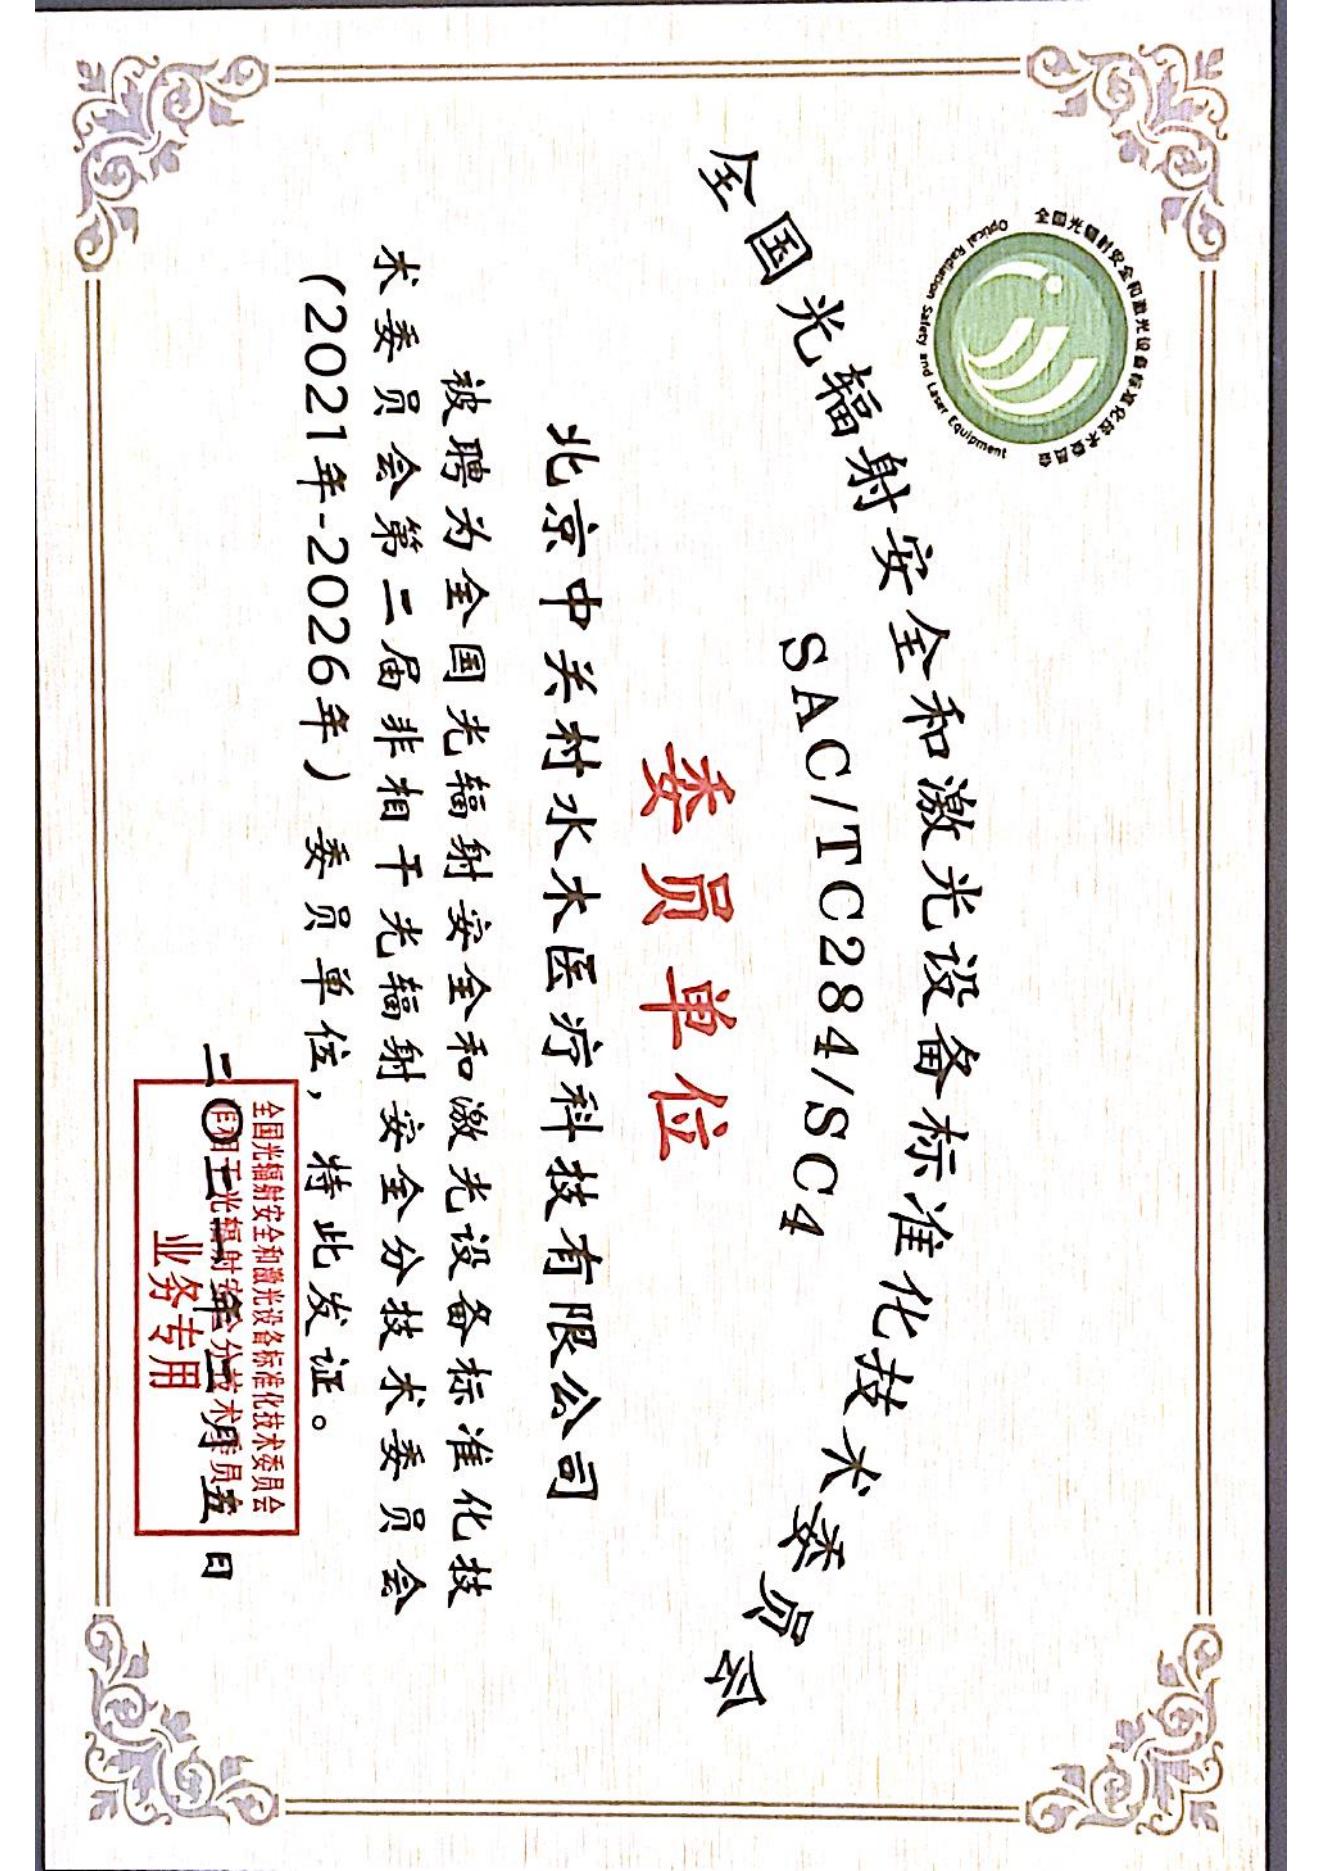 全国光辐射安全和激光设备标准化技术委员会
Optical Radiation Safety and Laser Equipment
全国光辐射安全和激光设备标准化技术委员会
SAC/TC284/SC4
委员单位
北京中关村水木医疗科技有限公司
被聘为全国光辐射安全和激光设备标准化技
术委员会第二届非相干光辐射安全分技术委员会
(2021年-2026年)委员单位,特此发证。
全国光辐射安全和激光设备标准化技术委员会
非相干光辐射安全分技术委员会
业务专用
二〇二一年二月五日